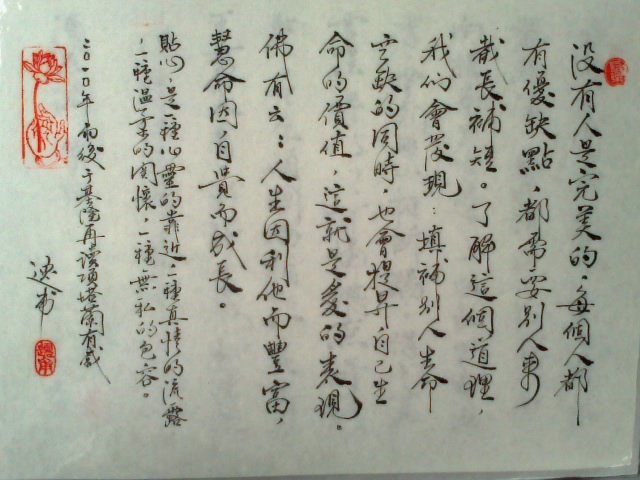 沒有人是完美的，每個人都
有優缺點，都需要別人來
截長補短。了解這個道理，
我們會發現：填補別人生命
空缺的同時，也會提昇自己生
命的價值，這就是愛的表現。
佛有云：人生因利他而豐富，
慧命因自覺而成長。
貼心，是一種心靈的靠近，一種真情的流露
，一種溫柔的關懷，一種無私的包容。
二〇一〇年前後于基隆再讀項塔蘭有感